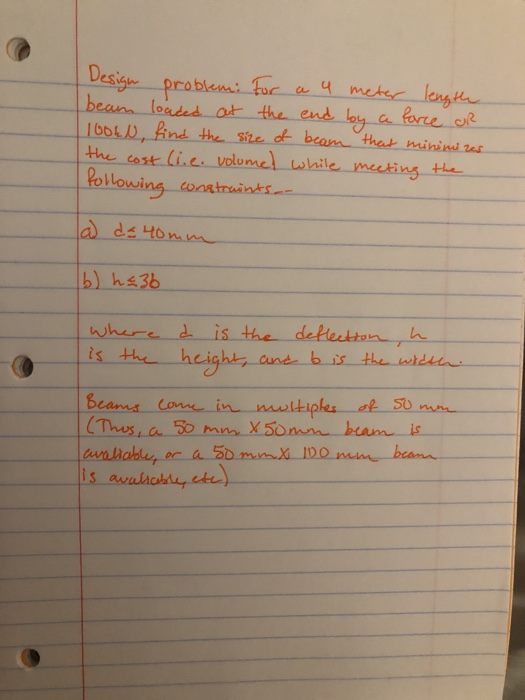 Design problem: For a 4 meter length
beam loaded at the end by a force of
100kN, find the size of beam that minimizes
the cost (i.e. volume) while meeting the
following constraints--
a) d≤40mm
b) h≤3b
where d is the deflection, h
is the height, and b is the width.
Beams come in multiples of 50 mm
(Thus, a 50 mm X 50mm beam is
avaliable, or a 50 mm X 100 mm beam
is avaliable, etc)